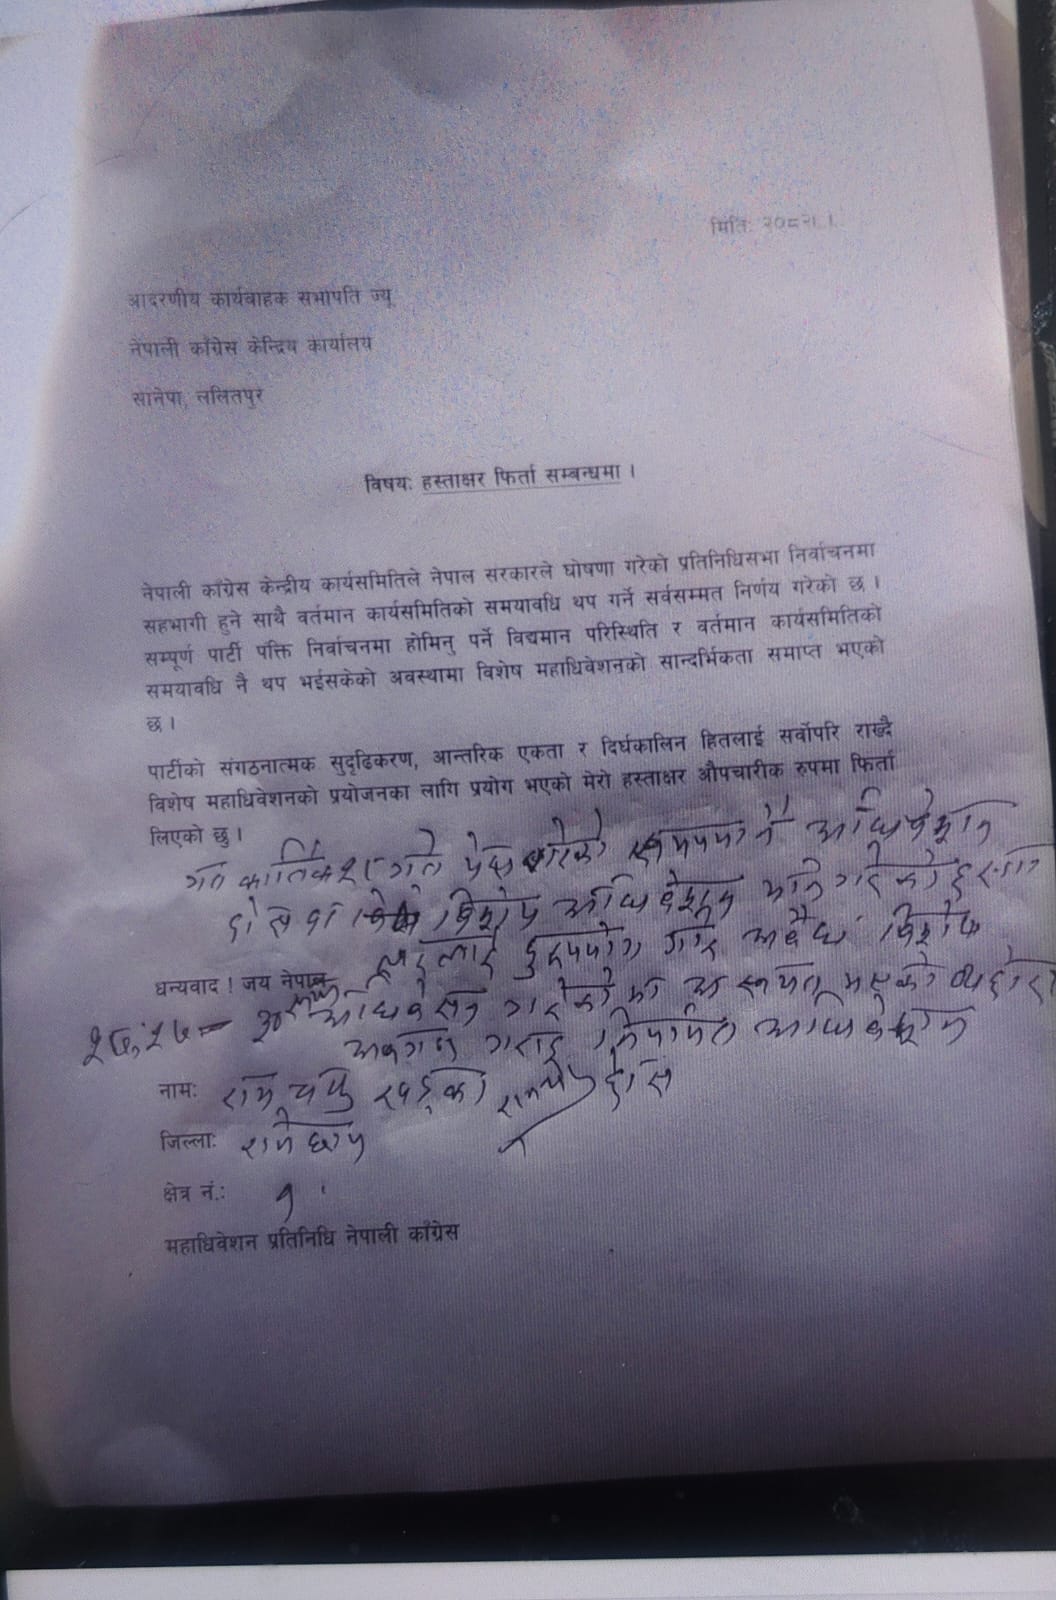 मिति: २०८२। ।
आदरणीय कार्यवाहक सभापति ज्यू
नेपाली काँग्रेस केन्द्रिय कार्यालय
सानेपा, ललितपुर
विषय: हस्ताक्षर फिर्ता सम्बन्धमा ।
नेपाली काँग्रेस केन्द्रीय कार्यसमितिले नेपाल सरकारले घोषणा गरेको प्रतिनिधिसभा निर्वाचनमा
सहभागी हुने साथै वर्तमान कार्यसमितिको समयावधि थप गर्ने सर्वसम्मत निर्णय गरेको छ ।
सम्पूर्ण पार्टी पंक्ति निर्वाचनमा होमिनु पर्ने विद्यमान परिस्थिति र वर्तमान कार्यसमितिको
समयावधि नै थप भईसकेको अवस्थामा विशेष महाधिवेशनको सान्दर्भिकता समाप्त भएको
छ ।
पार्टीको संगठनात्मक सुदृढिकरण, आन्तरिक एकता र दिर्घकालिन हितलाई सर्वोपरि राख्दै
विशेष महाधिवेशनको प्रयोजनका लागि प्रयोग भएको मेरो हस्ताक्षर औपचारीक रुपमा फिर्ता
लिएको छु ।
गत कार्तिक गते अधिवेशन
विशेष अधिवेशन
लाई दुरुपयोग गरि अवैध विशेष
धन्यवाद ! जय नेपाल
अधिवेसन गरेको मा
अवगत गराई नियमित अधिवेशन
नाम: राम खड्का होस
जिल्ला: रामेछाप
क्षेत्र नं.: १
महाधिवेशन प्रतिनिधि नेपाली काँग्रेस